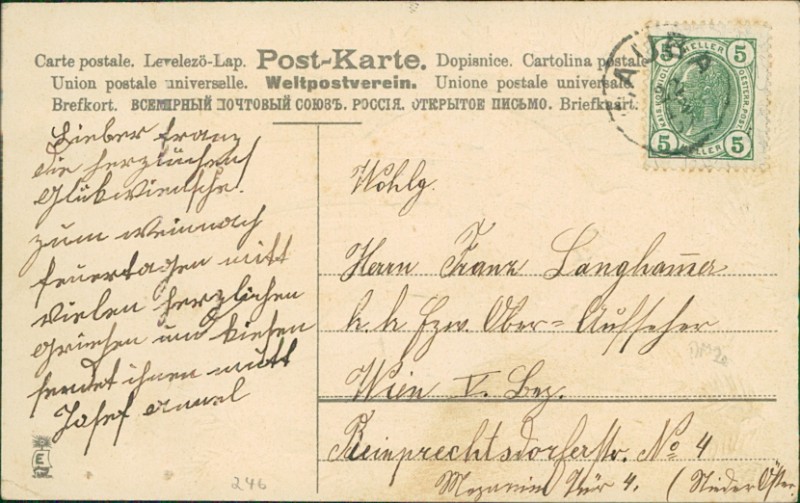 Carte postale. Levelezö-Lap. Post-Karte. Dopisnice. Cartolina postale
Union postale universelle. Weltpostverein. Unione postale universale
Brefkort. ВСЕМІРНЫЙ ПОЧТОВЫЙ СОЮЗЪ. РОССІЯ. ОТКРЫТОЕ ПИСЬМО. Briefkaart.
5 HELLER 5
KAIS. KÖNIGL. OESTERR. POST
5 HELLER 5
Lieber Franz
die herzlichen
Glükwiensche!
zum Weinnach
feuertagen mitt
vielen herzlichen
Griehsen und kiesen
sendet ihnen
Josef
Wohlg.
Herrn Franz Langham̅er
k. k. Ober= Aufseher
Wien V. Bez.
Reinprechtsdorferstr. No 4
Mezanin Thür 4. (Nieder Öster
246